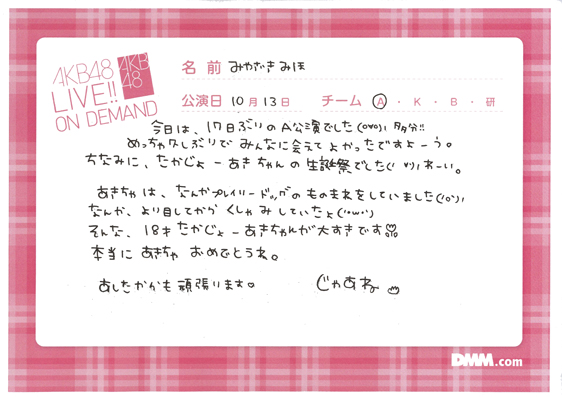 AKB48
LIVE!!
ON DEMAND
AKB
48
名前 みやざきみほ
公演日 10月13日 チーム A・K・B・研
今日は、17日ぶりのA公演でした(ovo)，多分!!
めっちゃ久しぶりで みんなに会えて よかったですよーう。
ちなみに、たかじょーあきちゃんの生誕祭でした わーい。
あきちゃは、なんかプレイリードッグのものまねをしていました
なんか、より目してから くしゃみしていたよ
そんな、18才たかじょーあきちゃんが大すきです
本当に あきちゃ おめでとうね。
あしたからも頑張ります じゃあね
DMM.com